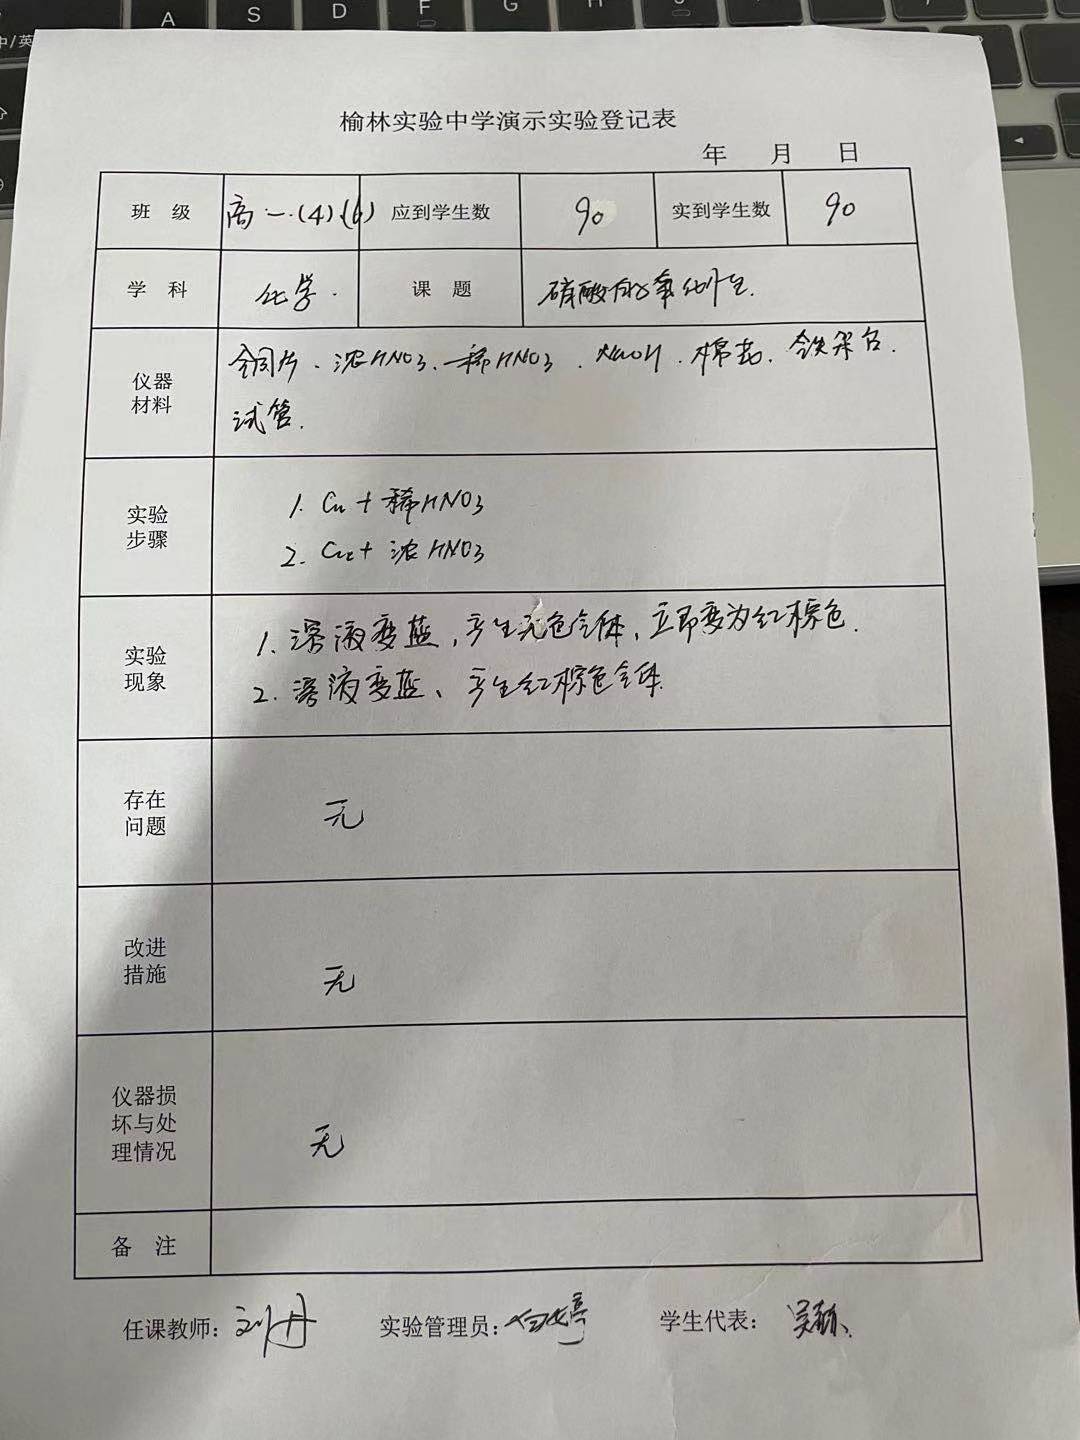 A S D F G H J
中/英
榆林实验中学演示实验登记表
年 月 日
班 级 高一.(4).(6) 应到学生数 90 实到学生数 90
学 科 化学. 课 题 硝酸的氧化性.
仪器材料 铜片、浓HNO3、稀HNO3、NaOH、棉花、铁架台、
试管.
实验步骤 1. Cu + 稀HNO3
2. Cu + 浓HNO3
实验现象 1. 溶液变蓝,产生无色气体、立即变为红棕色.
2. 溶液变蓝、产生红棕色气体.
存在问题 无
改进措施 无
仪器损坏与处理情况 无
备 注
任课教师:刘丹 实验管理员:白婷 学生代表:吴